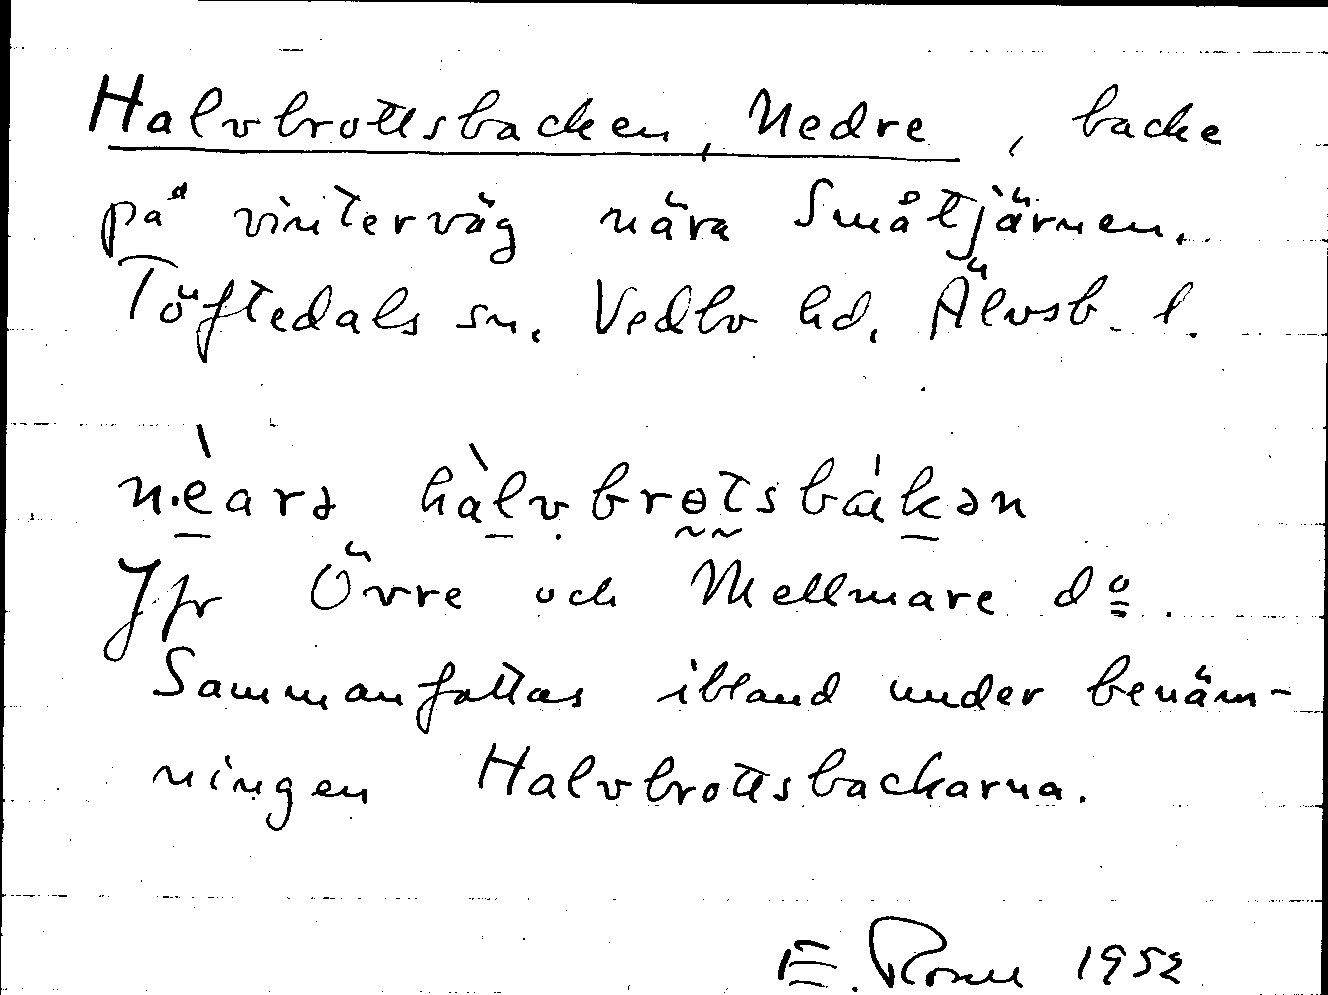 Halvbrottsbacken, Nedre, backe
på vinterväg nära Småtjärnen.
Töftedals sn. Vedbo hd. Älvsb. l.
nèarə hàlvbrɵtsbákən
Jfr Övre och Mellmare do.
Sammanfattas ibland under benäm-
ningen Halvbrottsbackarna.
E. 1952